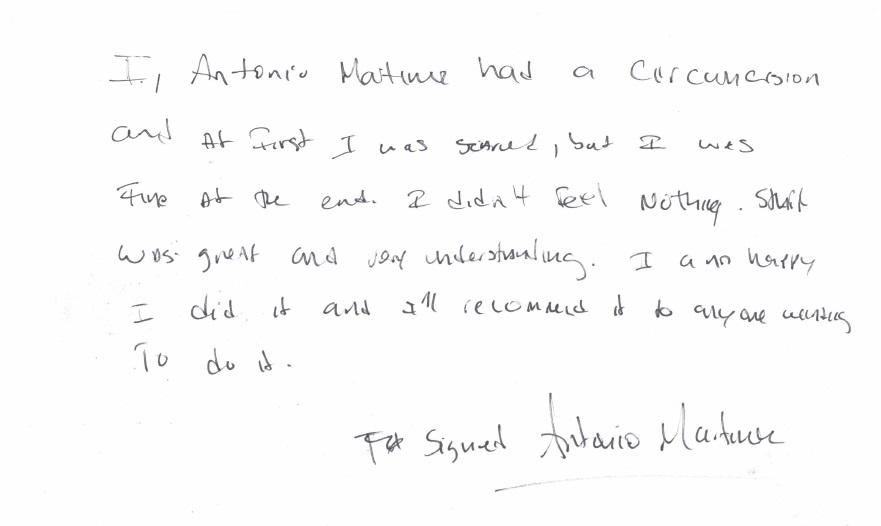 I, Antonio Martinez had a Circumcision
and At First I was scared, but I was
Fine At the end. I didn't Feel Nothing. Staff
was great and very understanding. I am happy
I did it and I'll recommend it to anyone wanting
To do it.
Signed Antonio Martinez